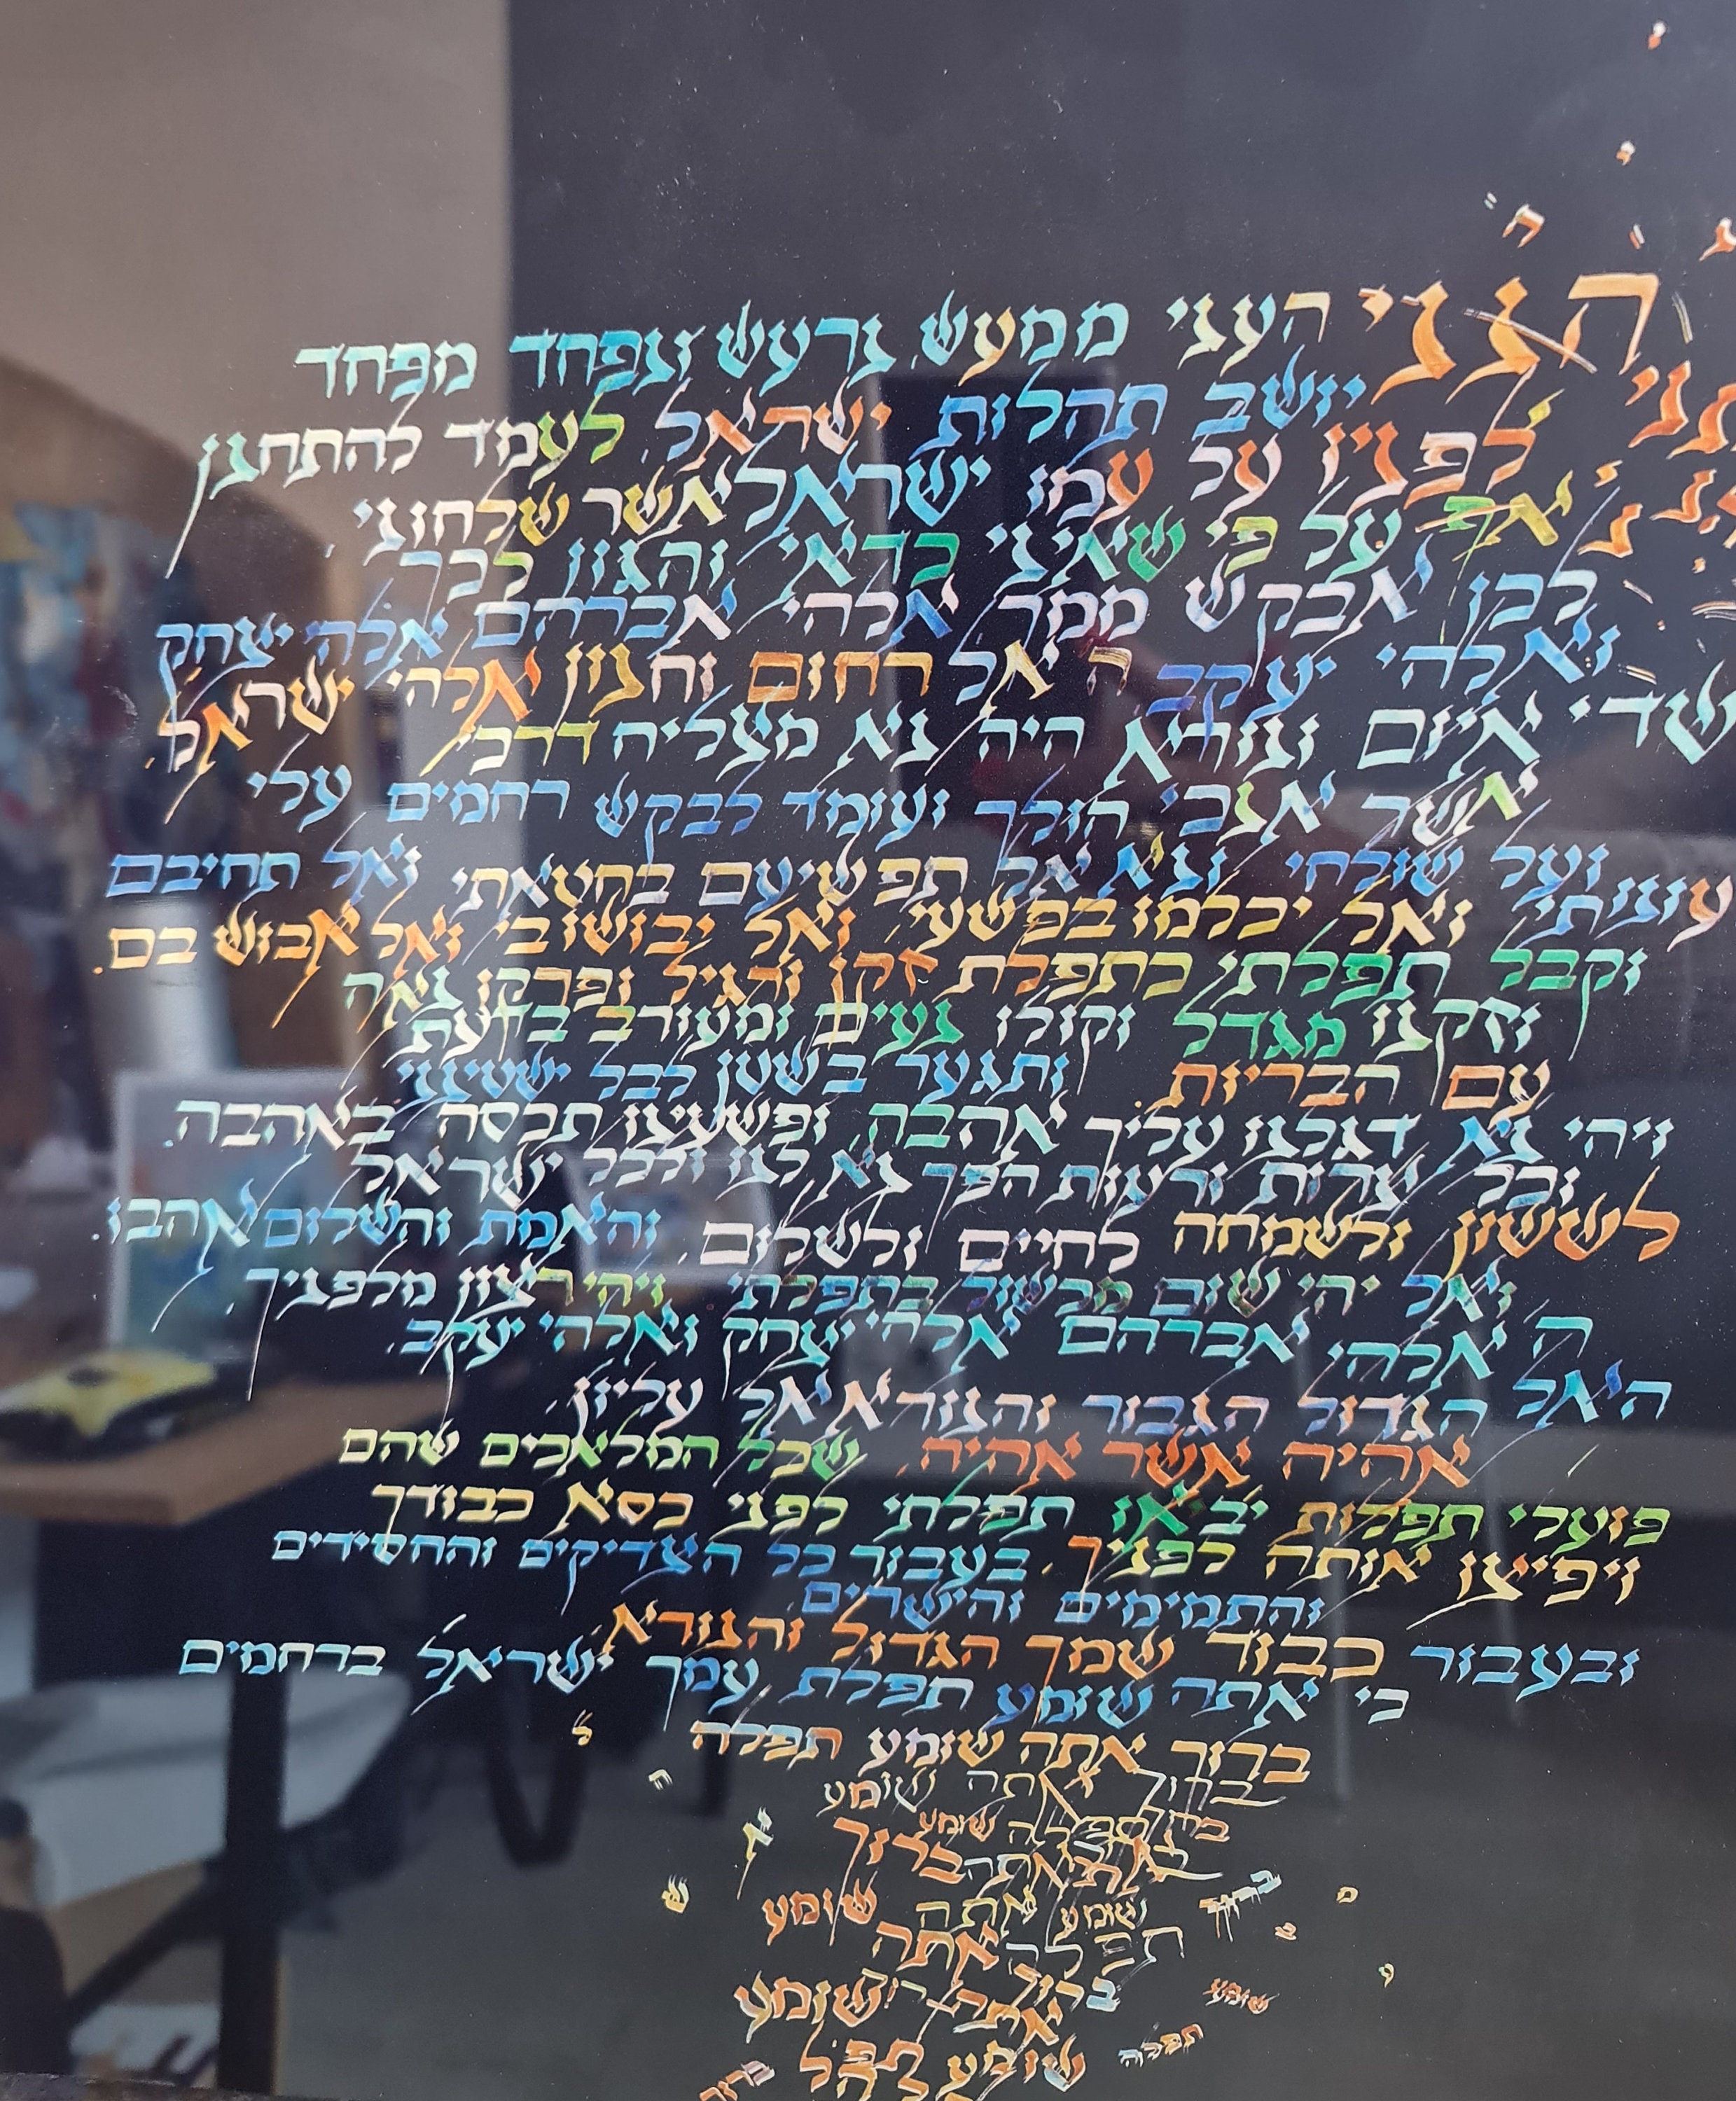 הנני העני ממעש נרעש ונפחד מפחד
יושב תהלות ישראל לעמד להתחנן
לפניו על עמו ישראל אשר שלחוני.
אף על פי שאיני כדאי והגון לכך
לכן אבקש ממך אלהי אברהם אלהי יצחק
ואלהי יעקב ה' אל רחום וחנון אלהי ישראל
שדי איום ונורא היה נא מצליח דרכי
אשר אנכי הולך ועומד לבקש רחמים עלי
ועל שולחי ונא אל תפשיעם בחטאתי ואל תחיבם
בעונותי ואל יכלמו בפשעי ואל יבושו בי ואל אבוש בם.
וקבל תפלתי כתפלת זקן ורגיל ופרקו נאה
וזקנו מגדל וקולו נעים ומעורב בדעת
עם הבריות. ותגער בשטן לבל ישטינני
ויהי נא דגלנו עליך אהבה ופשעינו תכסה באהבה.
וכל צרות ורעות הפך נא לנו ולכל ישראל
לששון ולשמחה לחיים ולשלום. והאמת והשלום אהבו.
ואל יהי שום מכשול בתפלתי ויהי רצון מלפניך
ה' אלהי אברהם אלהי יצחק ואלהי יעקב
האל הגדול הגבור והנורא אל עליון
אהיה אשר אהיה. שכל המלאכים שהם
פועלי תפלות יביאו תפלתי לפני כסא כבודך
ויפיצו אותה לפניך. בעבור כל הצדיקים והחסידים
והתמימים והישרים
ובעבור כבוד שמך הגדול והנורא
כי אתה שומע תפלת עמך ישראל ברחמים
ברוך אתה שומע תפלה
ברוך אתה שומע
שומע
ברוך
שומע אתה שומע
אתה
ברוך
שומע
שומע
שומע
תפלה
ברוך